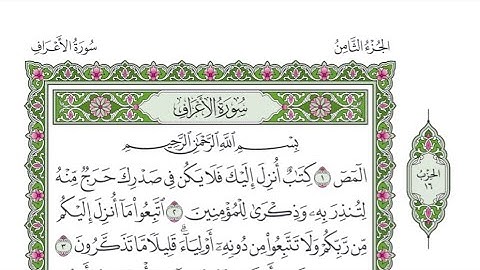 سُورَةُ الأَعْرَافِ
الجُزْءُ الثَّامِنُ
سُورَةُ الأَعْرَافِ
بِسْمِ ٱللَّهِ ٱلرَّحْمَٰنِ ٱلرَّحِيمِ
الٓمٓصٓ ١ كِتَٰبٌ أُنزِلَ إِلَيْكَ فَلَا يَكُن فِى صَدْرِكَ حَرَجٌ مِّنْهُ
لِتُنذِرَ بِهِۦ وَذِكْرَىٰ لِلْمُؤْمِنِينَ ٢ ٱتَّبِعُوا۟ مَآ أُنزِلَ إِلَيْكُم
مِّن رَّبِّكُمْ وَلَا تَتَّبِعُوا۟ مِن دُونِهِۦٓ أَوْلِيَآءَ ۗ قَلِيلًا مَّا تَذَكَّرُونَ ٣
الحِزْبُ
١٦